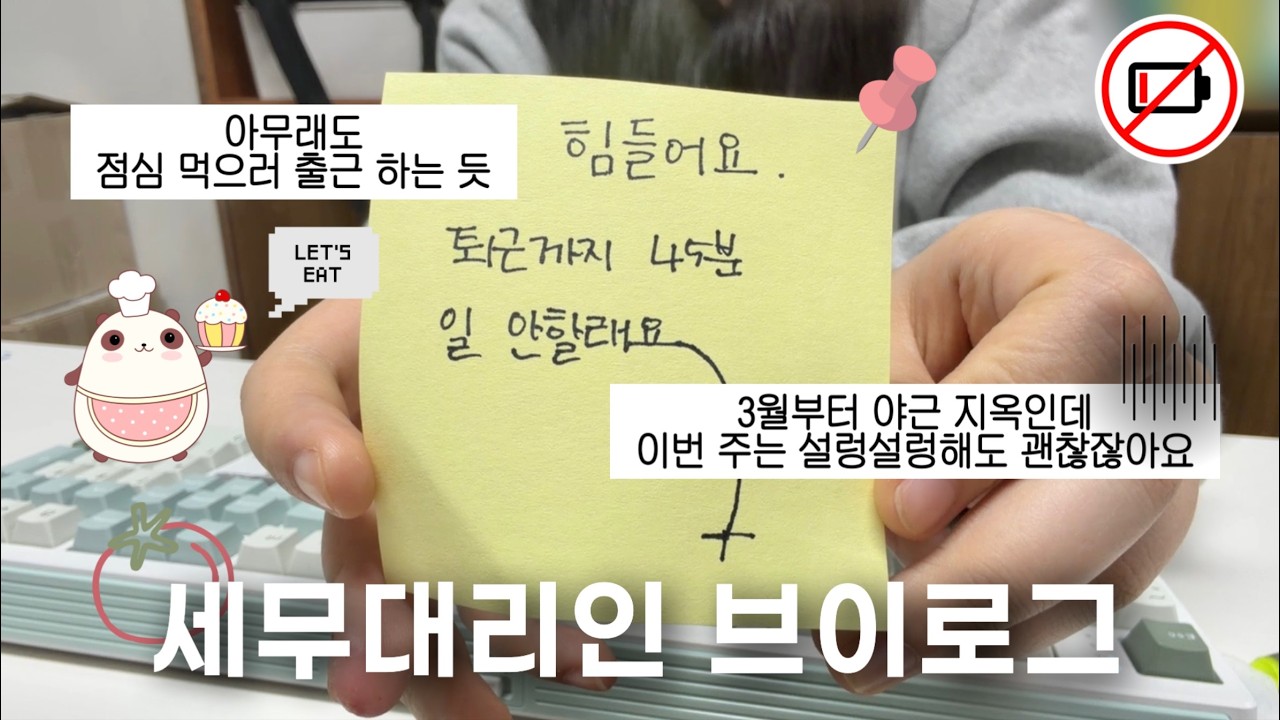 아무래도
점심 먹으러 출근 하는 듯
힘들어요.
퇴근까지 45분
일 안할래요
LET'S
EAT
3월부터 야근 지옥인데
이번 주는 설렁설렁해도 괜찮잖아요
세무대리인 브이로그